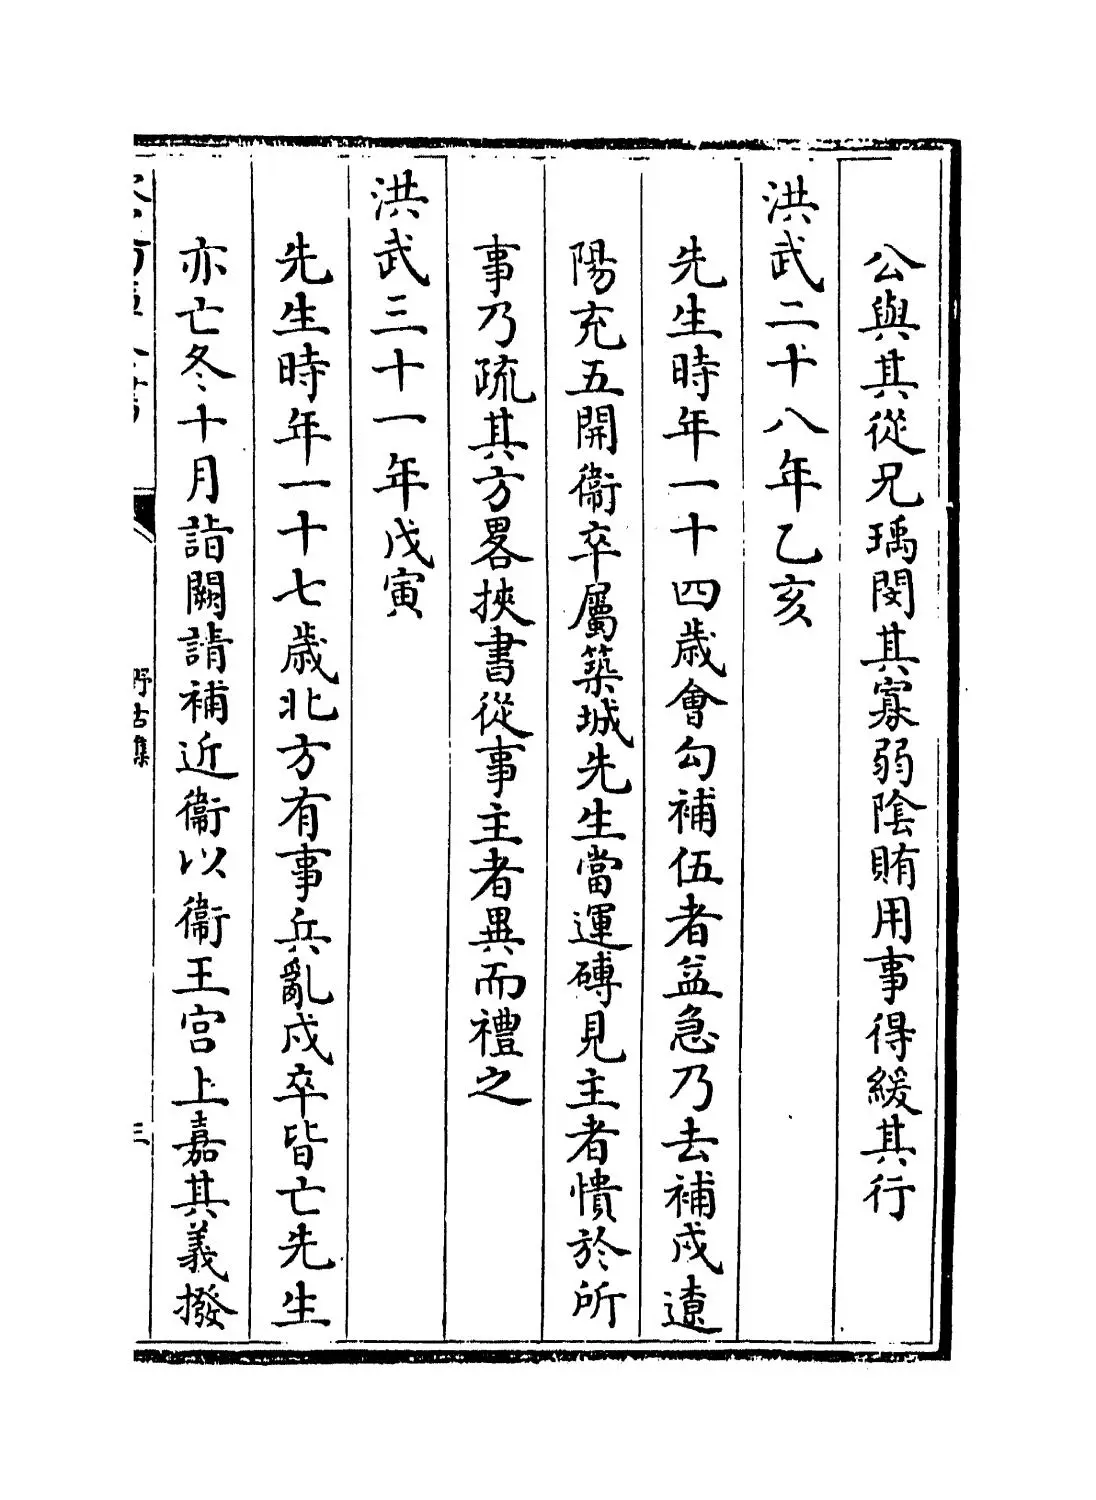 公與其從兄瑀閔其寡弱陰賄用事得緩其行
洪武二十八年乙亥
先生時年一十四歳會勾補伍者益急乃去補戍遼
陽充五開衞卒屬築城先生當運磚見主者憒於所
事乃疏其方畧挾書從事主者異而禮之
洪武三十一年戊寅
先生時年一十七歳北方有事兵亂戍卒皆亡先生
亦亡冬十月詣闕請補近衞以衞王宮上嘉其義撥
野古集
三